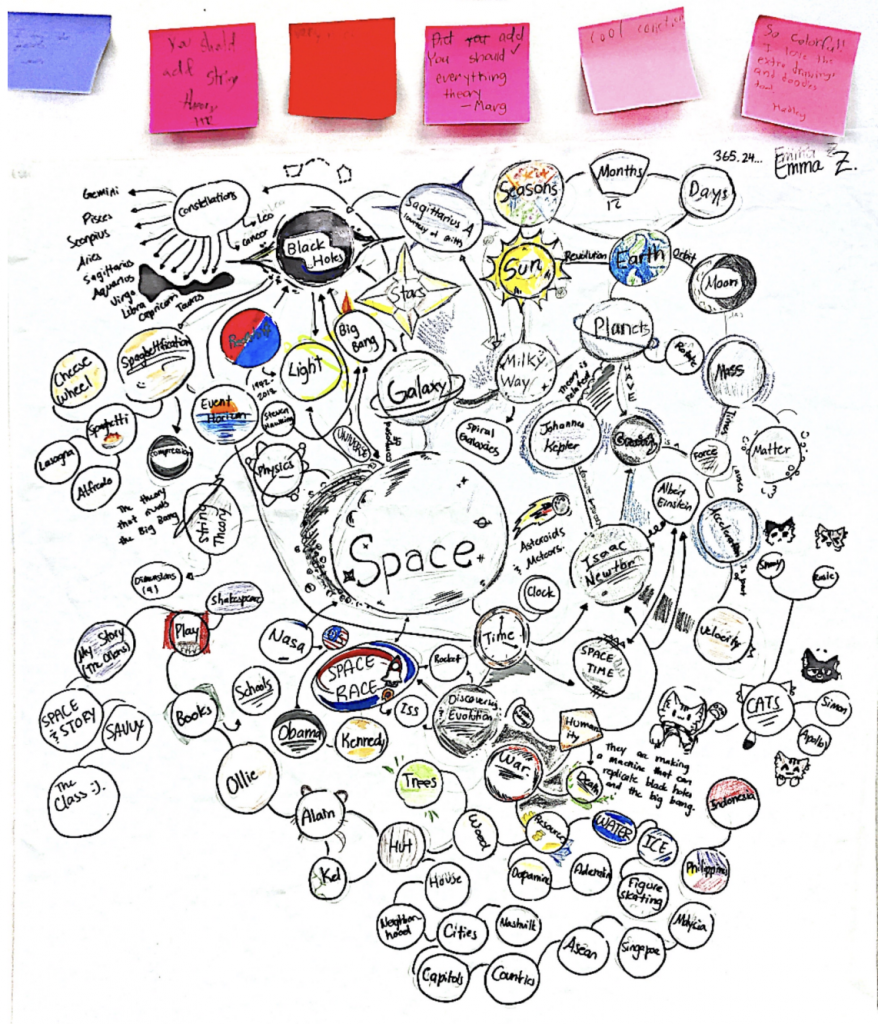 You should
add string
theory
Pict your add
You should
everything
theory
- Marg
Cool
So colorful!
I love the
extra drawings
and doodles
Hadley
365.24...
Emma Z.
Gemini
Pisces
Scorpius
Aries
Sagittarius
Aquarius
Virgo
Libra
Capricorn
Taurus
Leo
Cancer
Constellations
Black
Holes
Sagittarius A
Seasons
Months
12
Days
Sun
Revolution
Earth
Orbit
Moon
Stars
Big
Bang
Light
1942-
2018
Planets
Rotate
Mass
Milky
Way
Galaxy
Spaghettification
Cheese
Wheel
Spaghetti
Lasagna
Alfredo
Compression
Event
Horizon
Steven
Hawking
UNIVERSE
Physics
String
Theory
The theory
that rivals
the Big Bang
Dimensions
Spiral
Galaxies
Johannes
Kepler
HAVE
Gravity
Force
Matter
Albert
Einstein
Acceleration
Velocity
Space
Asteroids
& Meteors
Isaac
Newton
Clock
Time
SPACE
TIME
Nasa
SPACE
RACE
Rocket
Iss
Discovering
& Evolution
Obama
Kennedy
Shakespeare
Play
My Story
SPACE
& STORY
SAVVY
The
Class :).
Books
Schools
Ollie
Alain
Kel
Hut
Trees
Wood
War
Human
ity
Death
They are making
a machine that can
replicate black holes
and the big bang.
Resources
WATER
ICE
Figure
skating
Dopamine
House
Neighbor
hood
Cities
Nashville
Capitols
Countries
Asean
Singapoe
Malycia
Philippine
Indonesia
CATS
Simon
Apollo